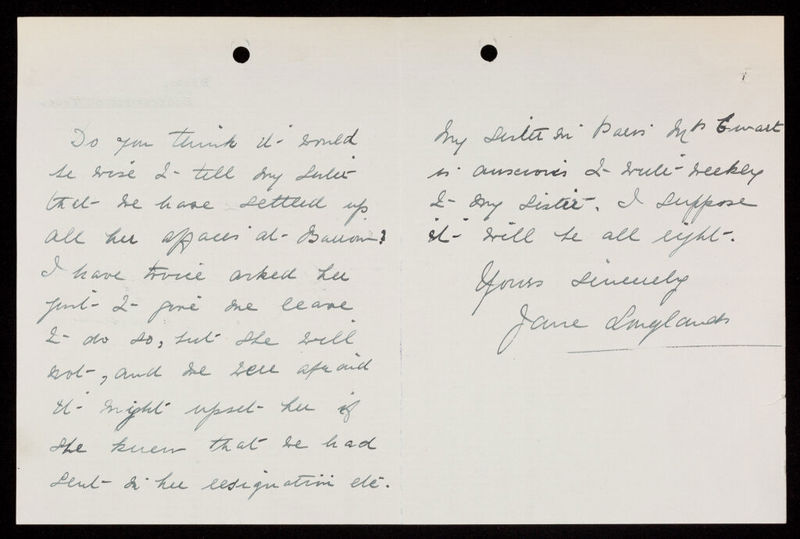 Do you think it would
be wise to tell my sister
that we have settled up
all her affairs at Barrow?
I have twice asked her
just to give me leave
to do so, but she will
not, and we were afraid
it might upset her if
she knew that we had
sent in her resignation etc.
My sister in Paris Mrs Ewart
is anxious to write weekly
to my sister. I suppose
it will be all right.
Yours sincerely
Jane Longlands